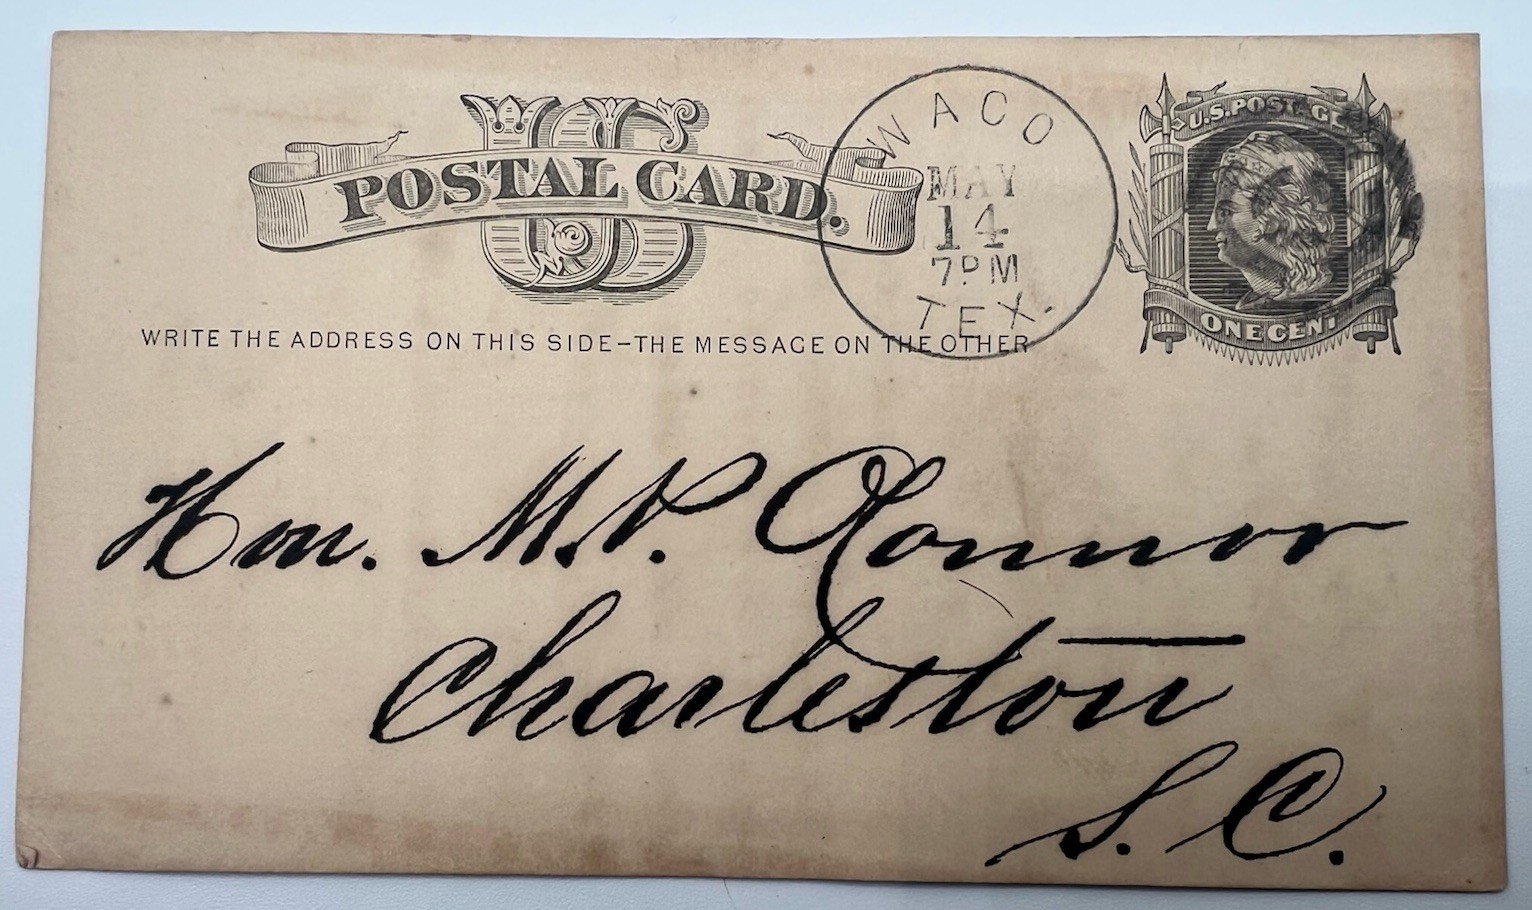 US
POSTAL CARD.
WACO
MAY
14
7PM
TEX.
U.S. POSTAGE
ONE CENT
WRITE THE ADDRESS ON THIS SIDE–THE MESSAGE ON THE OTHER
Hon. M.P. O'Connor
Charleston
S.C.